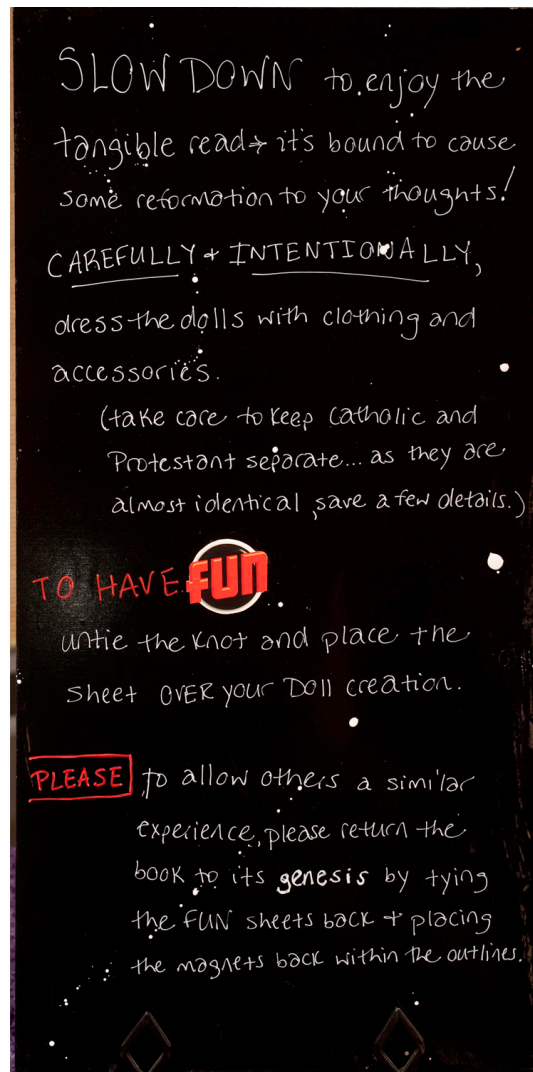 SLOW DOWN to enjoy the
tangible read → it's bound to cause
some reformation to your thoughts!
CAREFULLY + INTENTIONALLY,
dress the dolls with clothing and
accessories.
(take care to keep Catholic and
Protestant separate... as they are
almost identical, save a few details.)
TO HAVE FUN
untie the knot and place the
sheet OVER your Doll creation.
PLEASE, to allow others a similar
experience, please return the
book to its genesis by tying
the FUN sheets back + placing
the magnets back within the outlines.